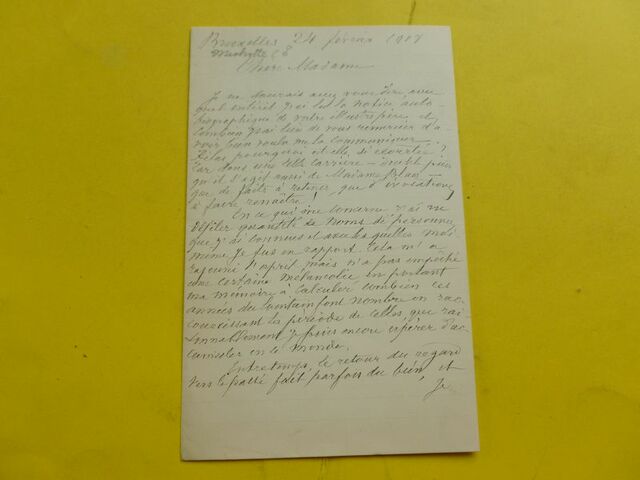 Bruxelles 24 février 1907
28
Chère Madame
Je ne saurais assez vous dire avec
quel intérêt j'ai lu la notice auto-
biographique de votre illustre père et
combien j'ai lieu de vous remercier d'a-
voir bien voulu me la communiquer.
Hélas pourquoi est-elle si écourtée?
Car dans une telle carrière
qu'il s'agit aussi de Madame
que de faits à retenir que d'évocations
à faire renaître!
En ce qui me concerne j'ai vu
défiler quantité de noms de personnes
que j'ai connues et avec lesquelles moi
même je fus en rapport. Cela m'a
rajeuni l'esprit, mais n'a pas empêché
une certaine mélancolie en portant
ma mémoire à calculer combien ces
années du lointain font nombre en rac-
courcissant la période de celles que
je puis encore espérer d'ac-
cumuler en ce monde.
Entretemps, le retour du regard
vers le passé fait parfois du bien, et
Je